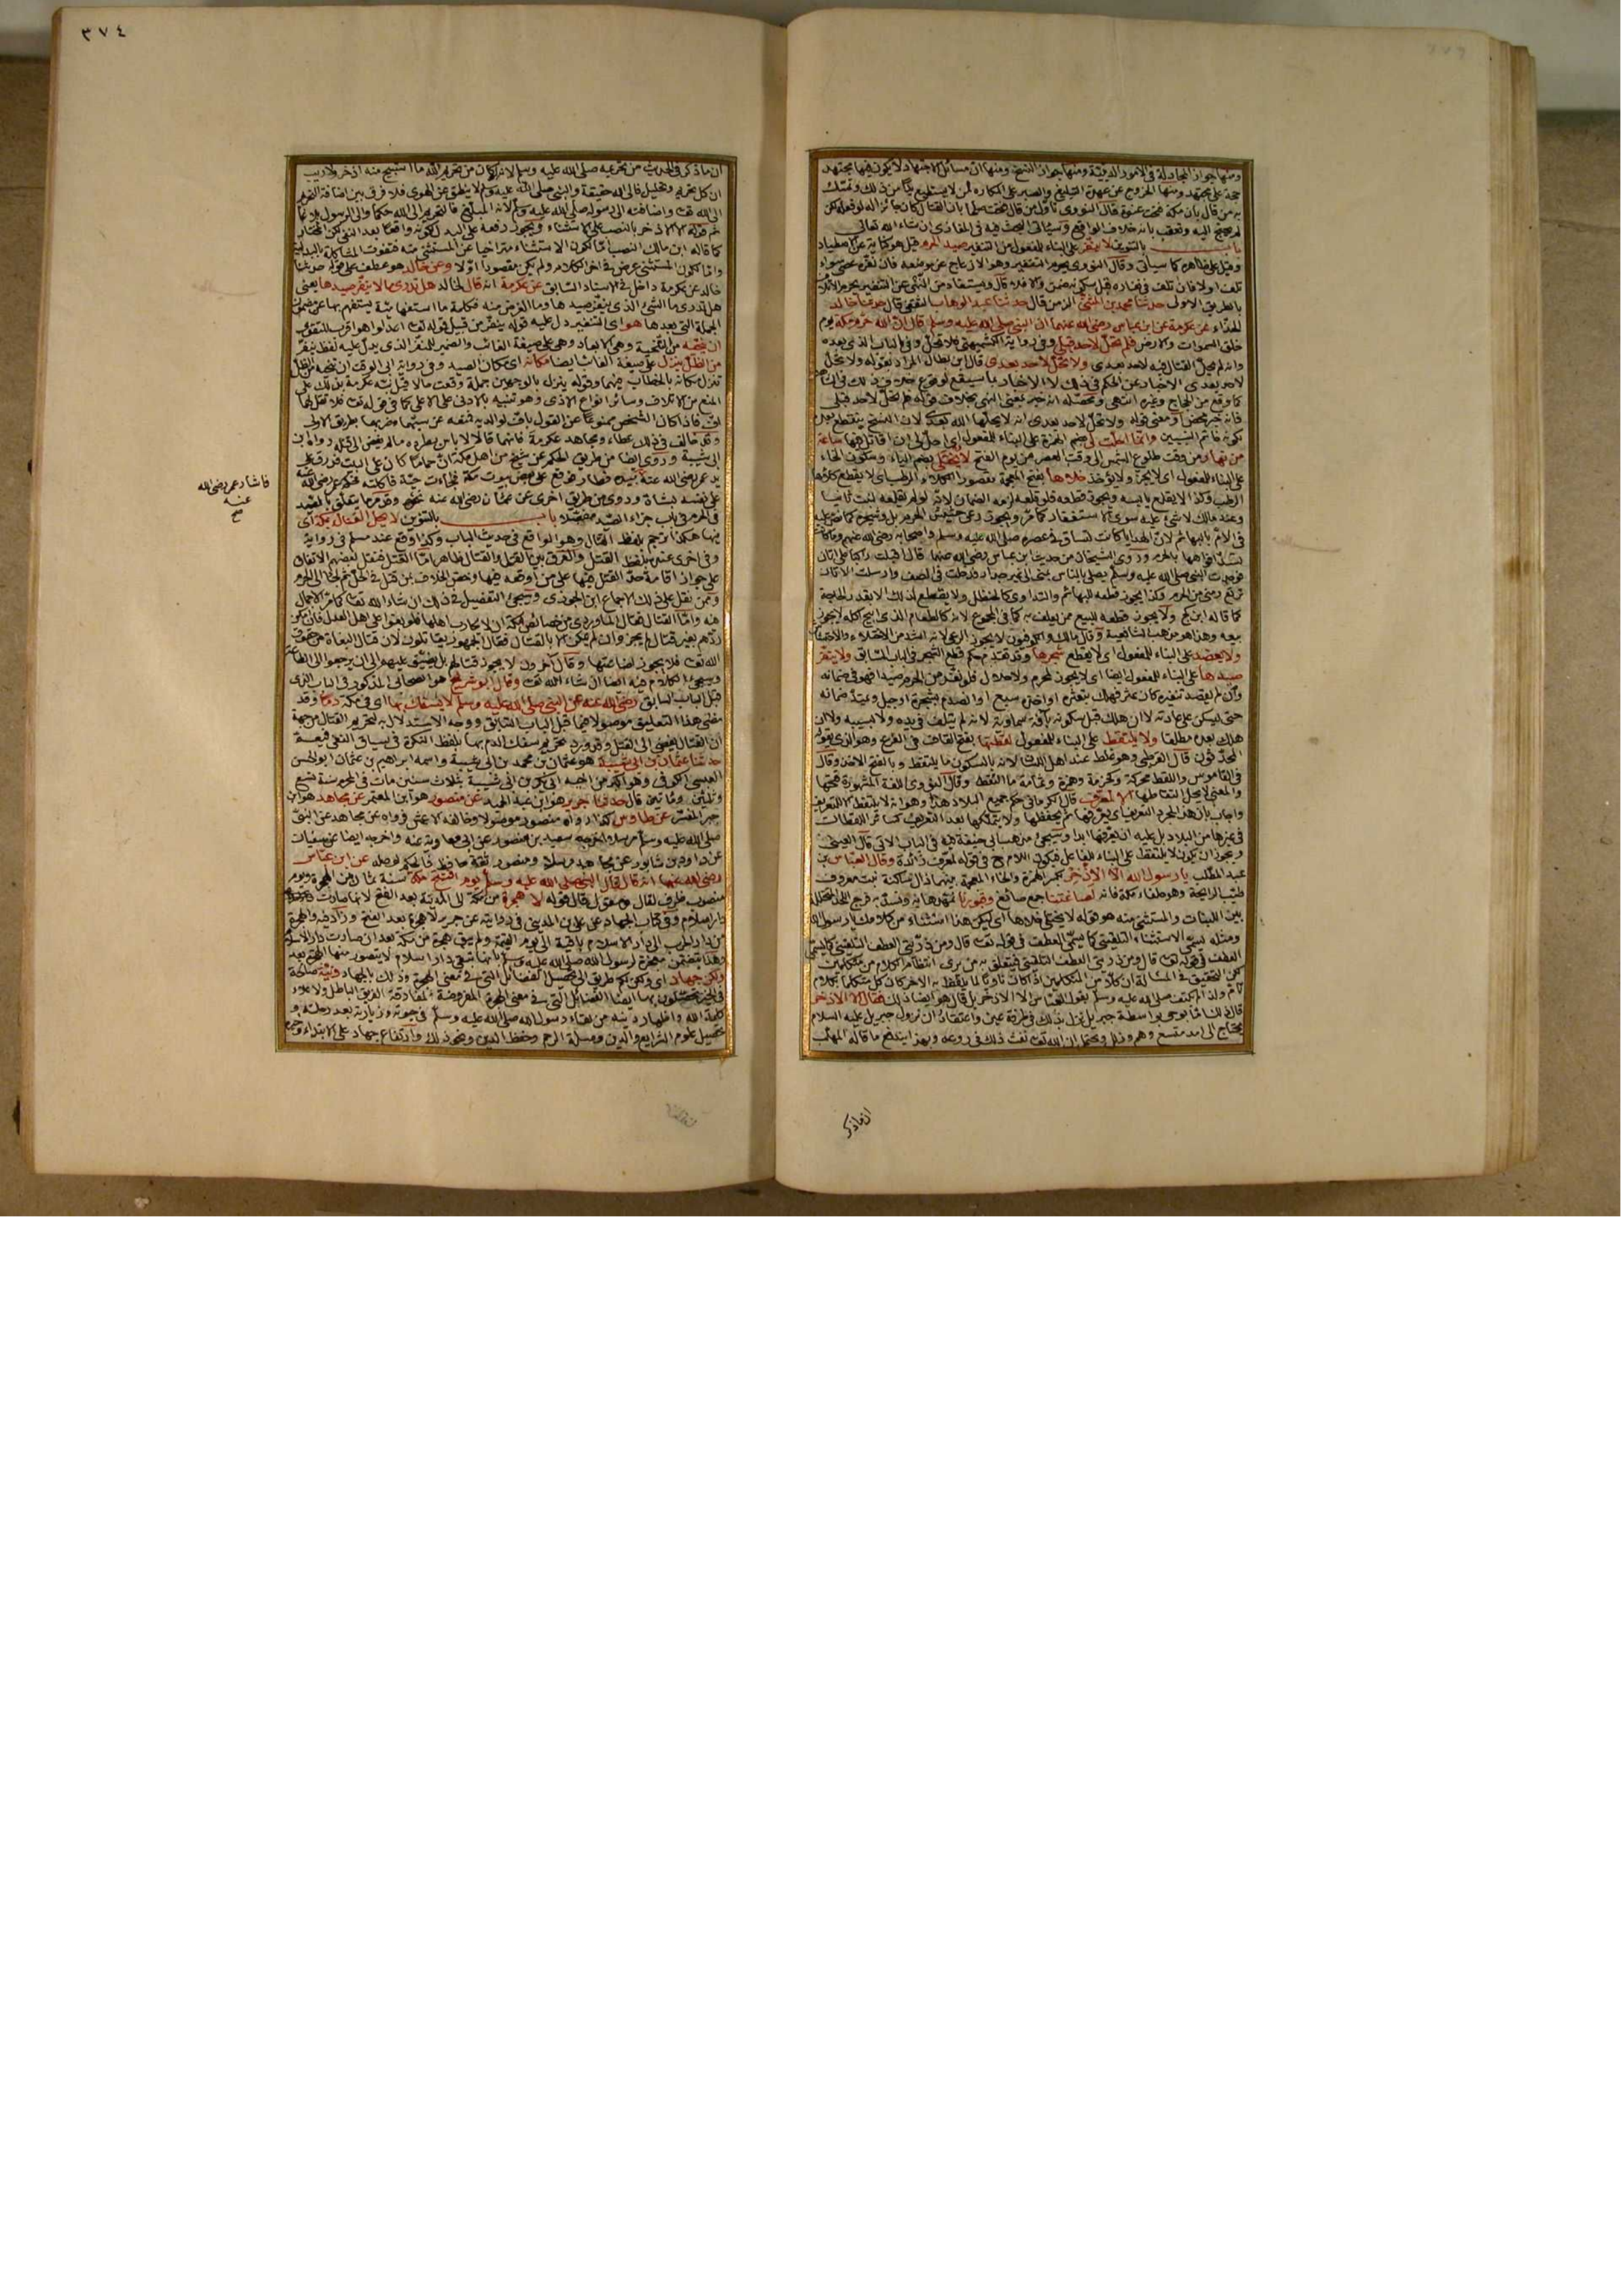 ومنها جواز المجادلة في الامور الدينية ومنها جواز النسخ ومنها ان مسائل الاجتهاد لا يكون فيها مجتهد
حجة على مجتهد ومنها الخروج عن عهدة التبليغ والصبر على المكاره لمن لا يستطيع بدا من ذلك وتمسك
به من قال بان مكة فتحت عنوة قال النووي تأول من قال فتحت صلحا بان القتال كان جائزا له لو فعله لكن
لم يحتج اليه وتعقب بانه خلاف الواقع وسيأتي البحث فيه في المغازي ان شاء الله تعالى
باب بالتنوين لا ينفر على البناء للمفعول من التنفير صيد الحرم قيل هو كناية عن الاصطياد
وقيل على ظاهره كما سيأتي وقال النووي يحرم التنفير وهو الازعاج عن موضعه فان نفره عصى سواء
تلف اولا فان تلف في نفاره قبل سكونه ضمن والا فلا قال ويستفاد من النهي عن التنفير تحريم الاتلاف
بالطريق الاولى حدثنا محمد بن المثنى الزمن قال حدثنا عبد الوهاب الثقفي قال حدثنا خالد
الحذاء عن عكرمة عن ابن عباس رضي الله عنهما ان النبي صلى الله عليه وسلم قال ان الله حرم مكة يوم
خلق السموات والارض فلم تحل لاحد قبلي وفي رواية الكشميهني فلا تحل وفي الباب الذي بعده
وانه لم يحل القتال فيه لاحد بعدي ولا تحل لاحد بعدي قال ابن بطال المراد بقوله ولا تحل
لاحد بعدي الاخبار عن الحكم في ذلك لا الاخبار بما سيقع لوقوع خلاف ذلك في الشاهد
كما وقع من الحجاج وغيره انتهى ومحصله انه خبر بمعنى النهي بخلاف قوله فلم تحل لاحد قبلي
فانه خبر محض او معنى قوله ولا تحل لاحد بعدي اي لا يحلها الله بعدي لان النسخ ينقطع بعده
لكونه خاتم النبيين وانما احلت لي بضم الهمزة على البناء للمفعول اي احل لي ان اقاتل فيها ساعة
من نهار من وقت طلوع الشمس الى وقت العصر من يوم الفتح لا يختلى بضم الياء وسكون الخاء
على البناء للمفعول اي لا يجز ولا يؤخذ خلاها بفتح المعجمة مقصورا الكلاء الرطب اي لا يقطع كلأها
الرطب وكذا لا يقلع يابسه ويجوز قطعه فلو قلعه لزمه الضمان لانه لو لم يقلعه لنبت ثانيا
في الام بالبهائم لان الهدايا كانت تساق في عصره صلى الله عليه وسلم واصحابه رضي الله عنهم وما كانت
تسد افواهها بالحرم وروى الشيخان من حديث ابن عباس رضي الله عنهما قال اقبلت راكبا على اتان
فوجدت النبي صلى الله عليه وسلم يصلي بالناس بمنى الى غير جدار فدخلت في الصف وارسلت الاتان
ترتع ومنى من الحرم وكذا يجوز قطعه للبهائم والتداوي كالحنظل ولا يقطع لذلك الا بقدر الحاجة
كما قاله ابن كج ولا يجوز قطعه للبيع ممن يعلف به كما في المجموع لانه كالطعام الذي ابيح اكله لا يجوز
بيعه وهذا هو مذهب الشافعية وقال مالك والكوفيون لا يجوز الرعي لانه اشد من الاختلاء والاحتشاش
ولا يعضد على البناء للمفعول اي لا يقطع شجرها وقد تقدم حكم قطع الشجر في الباب السابق ولا ينفر
صيدها على البناء للمفعول ايضا اي لا يجوز لمحرم ولا حلال فلو نفر من الحرم صيدا فهو في ضمانه
وان لم يقصد تنفيره كان عثر فهلك بتعثره او اخذه سبع او انصدم بشجرة او جبل ويمتد ضمانه
حتى يسكن على عادته لا ان هلك قبل سكونه بآفة سماوية لانه لم يتلف في يده ولا بسببه ولا ان
هلك بعده مطلقا ولا يلتقط على البناء للمفعول لقطتها بفتح القاف في الفرع وهو الذي يقوله
المحدثون قال القرطبي وهو غلط عند اهل اللسان لانه بالسكون ما يلتقط وبالفتح الاخذ وقال
في القاموس واللقط محركة وكحزمة وهمزة وثمامة ما التقط وقال النووي اللغة المشهورة فتحها
والمعنى لا يحل التقاطها الا لمعرف قال الكرماني حكم جميع البلاد هذا وهو انه لا يلتقط الا للتعريف
واجاب بان هذا لمجرد التعريف اي يعرفها ثم يحفظها ولا يتملكها بعد التعريف كسائر اللقطات
في غيرها من البلاد بل عليه ان يعرفها ابدا وسيجئ مذهب ابي حنيفة فيه في الباب الآتي قال العيني
ويجوز ان يكون لا يلتقط على البناء للفاعل فيكون اللام في قوله لمعرف زائدة وقال العباس بن
عبد المطلب يا رسول الله الا الاذخر بكسر الهمزة والخاء المعجمة بينهما ذال ساكنة نبت معروف
طيب الرائحة وهو حلفاء مكة فانه لصاغتنا جمع صائغ وقبورنا نمهدها به ونسد به فرج اللحد المتخللة
بين اللبنات والمستثنى منه هو قوله لا يختلى خلاها اي ليكن هذا استثناء من كلامك يا رسول الله
ومثله يسمى الاستثناء التلقيني كما يسمى العطف في قوله تعالى قال ومن ذريتي العطف التلقيني
لكن التحقيق في المسألة ان كلا من المتكلمين اذا كان ناويا لما يلفظ به الآخر كان كل متكلما بكلام
تام ولذا لم يكتف صلى الله عليه وسلم بقول العباس الا الاذخر بل قال هو ايضا ذلك فقال الا الاذخر
قال ذلك اما بوحي بواسطة جبريل نزل بذلك في طرفة عين واعتقاد ان نزول جبريل عليه السلام
يحتاج الى امد متسع وهم وزلل ويحتمل ان الله تعالى نفث ذلك في روعه وبهذا يندفع ما قاله المهلب
ان ما ذكر
٣٧٤
ان ما ذكر في الحديث من تحريمه صلى الله عليه وسلم لانه لو كان من تحريم الله ما استبيح منه اذخر ولا ريب
ان كل تحريم وتحليل فالى الله حقيقة والنبي صلى الله عليه وسلم لا ينطق عن الهوى فلا فرق بين اضافة التحريم
الى الله تعالى واضافته الى رسوله صلى الله عليه وسلم لانه المبلغ فالتحريم الى الله حكما والى الرسول بلاغا
ثم قوله الا الاذخر بالنصب على الاستثناء ويجوز رفعه على البدل لكونه واقعا بعد النفي لكن المختار
كما قاله ابن مالك النصب اما لكون الاستثناء متراخيا عن المستثنى منه فتفوت المشاكلة بالبدلية
واما لكون المستثنى عرض في آخر الكلام ولم يكن مقصودا اولا وعن خالد هو عطف على قوله حدثنا
خالد عن عكرمة داخل في الاسناد السابق عن عكرمة انه قال لخالد هل تدري ما لا ينفر صيدها يعني
هل تدري ما الشيء الذي ينفر صيدها وما الغرض منه فكلمة ما استفهامية يستفهم بها عن مضمون
الجملة التي بعدها هو اي التنفير دل عليه قوله ينفر من قبيل قوله تعالى اعدلوا هو اقرب للتقوى
ان ينحيه من التنحية وهي الابعاد وهي على صيغة الغائب والضمير للمنفر الذي يدل عليه لفظ ينفر
من الظل ينزل على صيغة الغائب ايضا مكانه اي مكان الصيد وفي رواية ابي الوقت ان تنحيه من الظل
تنزل مكانه بالخطاب فيهما وقوله ينزل بالوجهين جملة وقعت حالا قيل نبه عكرمة بذلك على
المنع من الاتلاف وسائر انواع الاذى وهو تنبيه بالادنى على الاعلى كما في قوله تعالى فلا تقل لهما
اف فاذا كان الشخص ممنوعا عن القول باف لوالديه فمنعه عن سبهما وضربهما بطريق الاولى
وقد خالف في ذلك عطاء ومجاهد عكرمة فانهما قالا لا بأس بطرده ما لم يفض الى قتله رواه ابن
ابي شيبة وروى ايضا من طريق الحكم عن شيخ من اهل مكة ان حماما كان على البيت فذرق على
يد عمر رضي الله عنه فاشار بيده فطار فوقع على بعض بيوت مكة فجاءت حية فاكلته فحكم عمر رضي الله عنه
على نفسه بشاة وروى من طريق اخرى عن عثمان رضي الله عنه نحوه وقد مر ما يتعلق بالصيد
في الحرم في باب جزاء الصيد مفصلا باب بالتنوين لا يحل القتال بمكة اي
فيها هكذا ترجم بلفظ القتال وهو الواقع في حديث الباب وكذا وقع عند مسلم في رواية
وفي اخرى عنه بلفظ القتل والفرق بين القتل والقتال ظاهر اما القتل فنقل بعضهم الاتفاق
على جواز اقامة حد القتل فيها على من اوقعه فيها وخص الخلاف بمن قتل في الحل ثم لجأ الى الحرم
وممن نقل على ذلك الاجماع ابن الجوزي وسيجئ التفصيل في ذلك ان شاء الله تعالى كما مر الاجمال
فيه واما القتال فقال الماوردي من خصائص مكة ان لا يحارب اهلها فلو بغوا على اهل العدل فان امكن
ردهم بغير قتال لم يجز وان لم يمكن الا بالقتال فقال الجمهور يقاتلون لان قتال البغاة من حقوق
الله تعالى فلا يجوز اضاعتها وقال آخرون لا يجوز قتالهم بل يضيق عليهم الى ان يرجعوا الى الطاعة
وسيجئ الكلام فيه ايضا ان شاء الله تعالى وقال ابو شريح هو الصحابي المذكور في الباب الذي
قبل الباب السابق رضي الله عنه عن النبي صلى الله عليه وسلم لا يسفك بها اي في مكة دما وقد
مضى هذا التعليق موصولا فيما قبل الباب السابق ووجه الاستدلال به لتحريم القتال من جهة
ان القتال يفضي الى القتل وقد ورد تحريم سفك الدم بها بلفظ النكرة في سياق النفي فيعم
حدثنا عثمان بن ابي شيبة هو عثمان بن محمد بن ابي شيبة واسمه ابراهيم بن عثمان ابو الحسن
العبسي الكوفي وهو اكبر من اخيه ابي بكر بن ابي شيبة بثلاث سنين مات في المحرم سنة تسع
وثلثين ومائتين قال حدثنا جرير هو ابن عبد الحميد عن منصور هو ابن المعتمر عن مجاهد هو ابن
جبر المفسر عن طاوس كذا رواه منصور موصولا وخالفه الاعمش فرواه عن مجاهد عن النبي
صلى الله عليه وسلم مرسلا اخرجه سعيد بن منصور عن ابي معاوية عنه واخرجه ايضا عن سفيان
عن داود بن شابور عن مجاهد مرسلا ومنصور ثقة حافظ فالحكم لوصله عن ابن عباس
رضي الله عنهما انه قال قال النبي صلى الله عليه وسلم يوم افتتح مكة سنة ثمان من الهجرة ويوم
منصوب ظرف لقال ومقول قال قوله لا هجرة من مكة الى المدينة بعد الفتح لانها صارت
دار اسلام وفي كتاب الجهاد عن علي بن المديني في روايته عن جرير لا هجرة بعد الفتح وزاد فيه والهجرة
من دار الحرب الى دار الاسلام باقية الى يوم القيمة ولم يبق هجرة من مكة بعد ان صارت دار الاسلام
وهذا يتضمن معجزة لرسول الله صلى الله عليه وسلم بانها تبقى دار اسلام لا يتصور منها الهجرة بعد
ولكن جهاد اي ولكن لكم طريق الى تحصيل الفضائل التي في معنى الهجرة وذلك بالجهاد ونية صالحة
كلمة الله واظهار دينه من لقاء رسول الله صلى الله عليه وسلم في حيوته وزيارته بعد رحلته و
تحصيل علوم الشرايع والدين وصلة الرحم وحفظ الدين ونحو ذلك وارتفاع جهاد على الابتداء
فاشار عمر رضي الله
عنه
صح